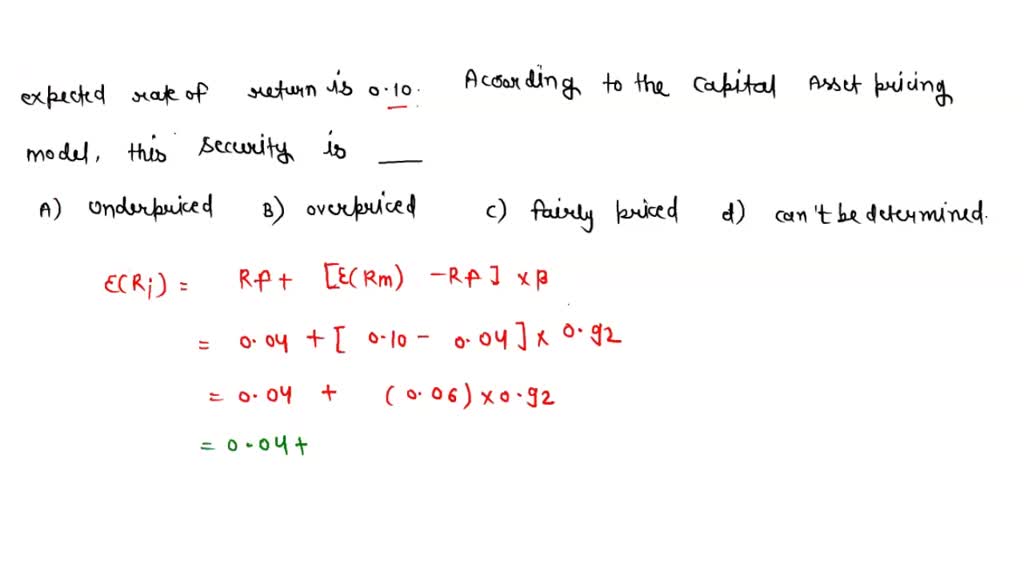 expected rate of return is 0.10. According to the capital Asset pricing
model, this security is ___
A) underpriced B) overpriced c) fairly priced d) can't be determined.
E(Ri) = Rf + [E(Rm) - Rf] × β
= 0.04 + [ 0.10 - 0.04] × 0.92
= 0.04 + (0.06) × 0.92
= 0.04 +